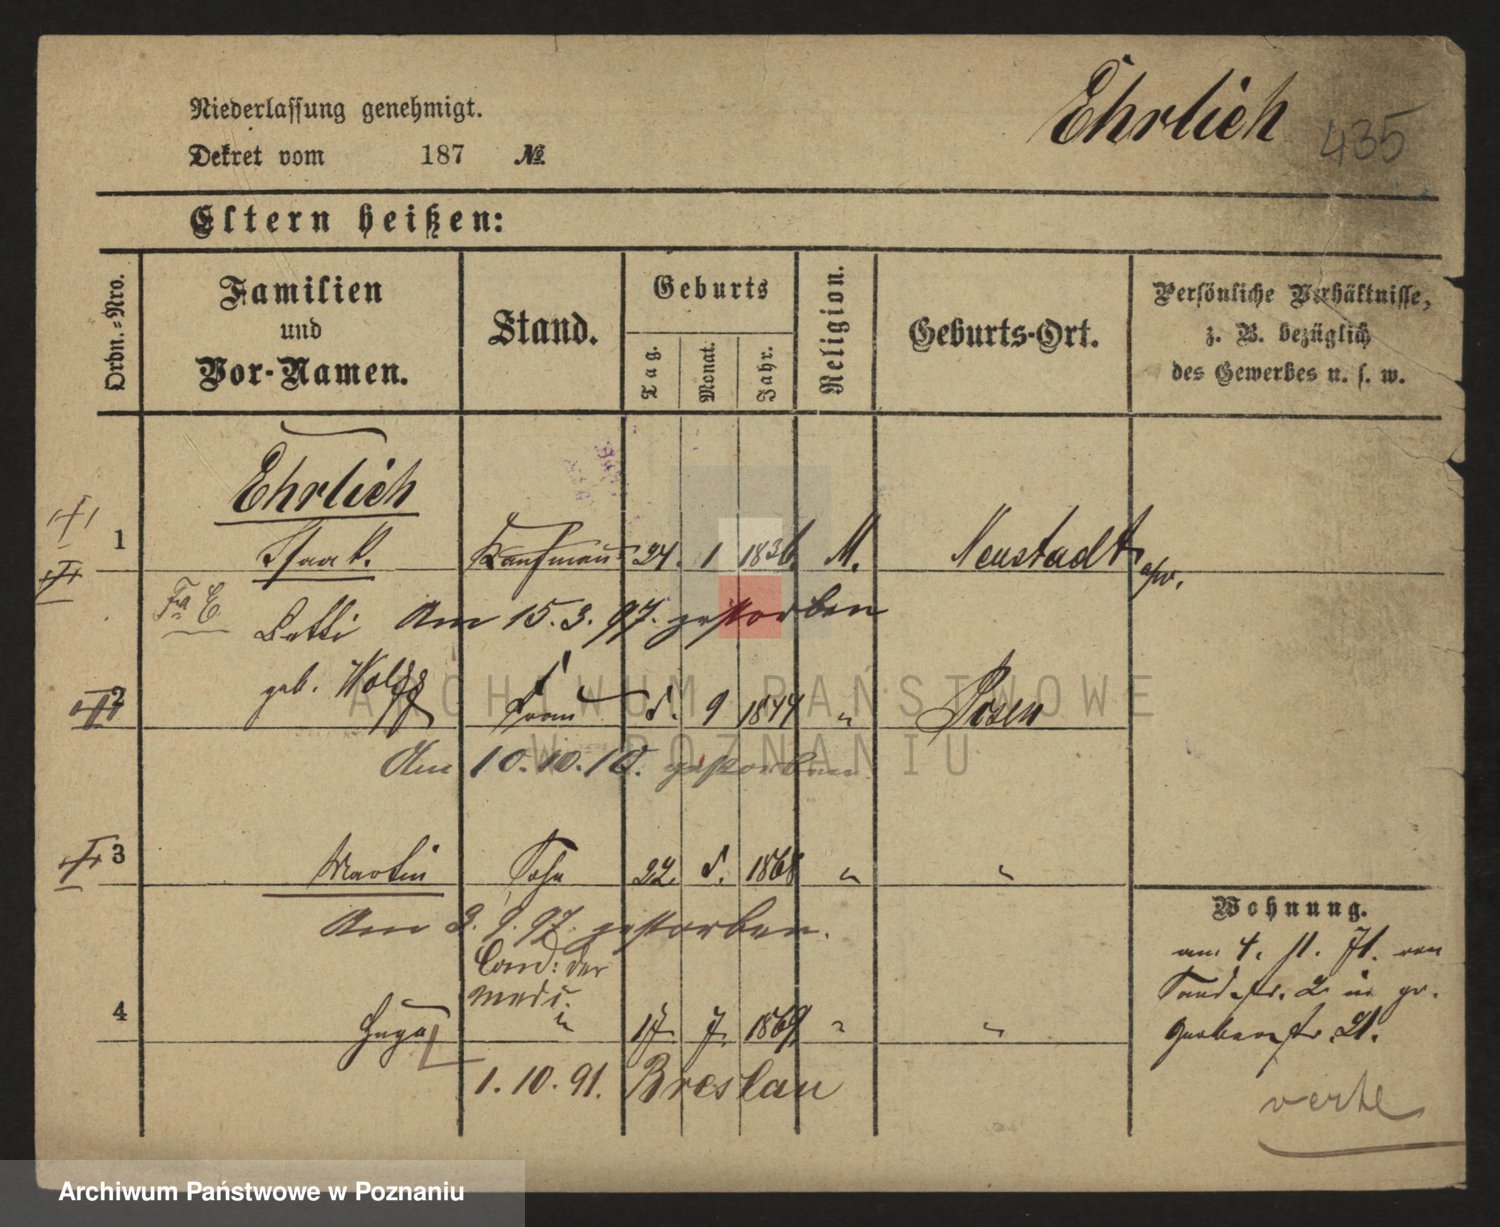 Ehrlich 435
Niederlassung genehmigt.
Dekret vom 187 №
Eltern heißen:
Ordn.-Nro.
Familien
und
Vor-Namen.
Stand.
Geburts
Tag.
Monat.
Jahr.
Religion.
Geburts-Ort.
Persönliche Verhältnisse,
z. B. bezüglich
des Gewerbes u. s. w.
Ehrlich
1 Isaak Kaufmann 24. 1 1836. M. Neustadt
Fr. E
Am 15.3.97. gestorben
geb. Wolff
2 Frau 9 1844 " Posen
Am 10.10.10. gestorben
3 Martin Sohn 22. 1868 " "
Am 3. 9. 97. gestorben.
Cand: der
med.
4 Hugo " 17. 7. 1869. " "
1. 10. 91. Breslau
Wohnung.
am 4. 11. 71. von
Sandstr. 2 in gr.
Gerberstr. 21.
verte
ARCHIWUM PAŃSTWOWE
W POZNANIU
Archiwum Państwowe w Poznaniu